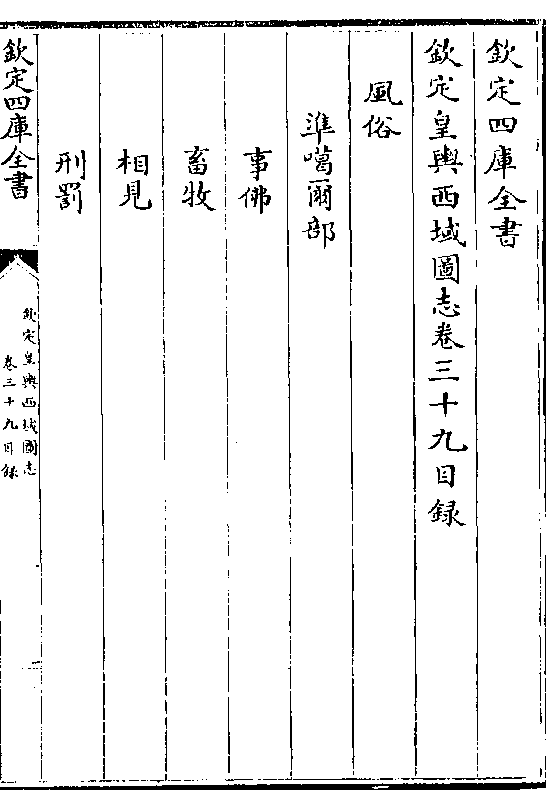 欽定四庫全書
欽定皇輿西域圖志卷三十九目録
風俗
準噶爾部
事佛
畜牧
相見
刑罰
欽定四庫全書
欽定皇輿西域圖志
卷三十九目録